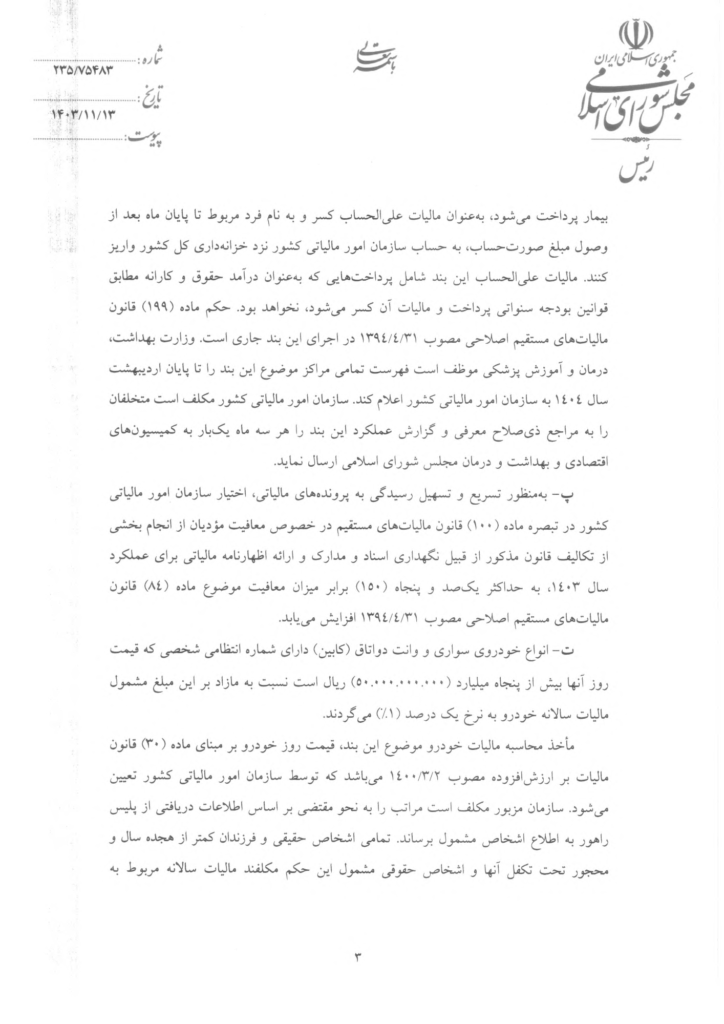 جمهوری اسلامی ایران
مجلس شورای اسلامی
رئیس
باسمه تعالی
شماره:
۲۳۵/۷۵۴۸۳
تاریخ:
۱۴۰۳/۱۱/۱۳
پیوست:
بیمار پرداخت می‌شود، به‌عنوان مالیات علی‌الحساب کسر و به نام فرد مربوط تا پایان ماه بعد از
وصول مبلغ صورت‌حساب، به حساب سازمان امور مالیاتی کشور نزد خزانه‌داری کل کشور واریز
کنند. مالیات علی‌الحساب این بند شامل پرداخت‌هایی که به‌عنوان درآمد حقوق و کارانه مطابق
قوانین بودجه سنواتی پرداخت و مالیات آن کسر می‌شود، نخواهد بود. حکم ماده (۱۹۹) قانون
مالیات‌های مستقیم اصلاحی مصوب ۱۳۹٤/٤/۳۱ در اجرای این بند جاری است. وزارت بهداشت،
درمان و آموزش پزشکی موظف است فهرست تمامی مراکز موضوع این بند را تا پایان اردیبهشت
سال ۱٤۰٤ به سازمان امور مالیاتی کشور اعلام کند. سازمان امور مالیاتی کشور مکلف است متخلفان
را به مراجع ذی‌صلاح معرفی و گزارش عملکرد این بند را هر سه ماه یک‌بار به کمیسیون‌های
اقتصادی و بهداشت و درمان مجلس شورای اسلامی ارسال نماید.
پ- به‌منظور تسریع و تسهیل رسیدگی به پرونده‌های مالیاتی، اختیار سازمان امور مالیاتی
کشور در تبصره ماده (۱۰۰) قانون مالیات‌های مستقیم در خصوص معافیت مؤدیان از انجام بخشی
از تکالیف قانون مذکور از قبیل نگهداری اسناد و مدارک و ارائه اظهارنامه مالیاتی برای عملکرد
سال ۱٤۰۳، به حداکثر یک‌صد و پنجاه (۱۵۰) برابر میزان معافیت موضوع ماده (۸٤) قانون
مالیات‌های مستقیم اصلاحی مصوب ۱۳۹٤/٤/۳۱ افزایش می‌یابد.
ت- انواع خودروی سواری و وانت دواتاق (کابین) دارای شماره انتظامی شخصی که قیمت
روز آنها بیش از پنجاه میلیارد (۵۰.۰۰۰.۰۰۰.۰۰۰) ریال است نسبت به مازاد بر این مبلغ مشمول
مالیات سالانه خودرو به نرخ یک درصد (۱٪) می‌گردند.
مأخذ محاسبه مالیات خودرو موضوع این بند، قیمت روز خودرو بر مبنای ماده (۳۰) قانون
مالیات بر ارزش‌افزوده مصوب ۱٤۰۰/۳/۲ می‌باشد که توسط سازمان امور مالیاتی کشور تعیین
می‌شود. سازمان مزبور مکلف است مراتب را به نحو مقتضی بر اساس اطلاعات دریافتی از پلیس
راهور به اطلاع اشخاص مشمول برساند. تمامی اشخاص حقیقی و فرزندان کمتر از هجده سال و
محجور تحت تکفل آنها و اشخاص حقوقی مشمول این حکم مکلفند مالیات سالانه مربوط به
۳